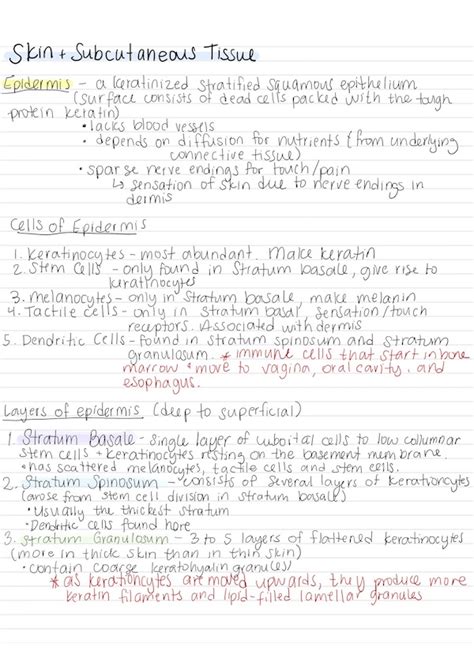 Skin + Subcutaneous Tissue
Epidermis - a keratinized stratified squamous epithelium
(surface consists of dead cells packed with the tough
protein keratin)
• lacks blood vessels
• depends on diffusion for nutrients (from underlying
connective tissue)
• sparse nerve endings for touch/pain
↳ sensation of skin due to nerve endings in
dermis
Cells of Epidermis
1. Keratinocytes - most abundant. Make keratin
2. Stem Cells - only found in Stratum basale, give rise to
keratinocytes
3. melanocytes - only in Stratum basale, make melanin
4. Tactile cells - only in Stratum basal, sensation/touch
receptors. Associated with dermis
5. Dendritic Cells - found in stratum spinosum and stratum
granulosum. * immune cells that start in bone
marrow + move to vagina, oral cavity, and
esophagus.
Layers of epidermis (deep to superficial)
1. Stratum Basale - single layer of cuboital cells to low collumnar
stem cells + keratinocytes resting on the basement membrane.
• has scattered melanocytes, tactile cells and stem cells.
2. Stratum Spinosum - consists of several layers of keratinocytes
(arose from stem cell division in stratum basale)
• Usually the thickest stratum
• Dendritic cells found here
3. Stratum Granulosum - 3 to 5 layers of flattened keratinocytes
(more in thick skin than in thin skin)
• contain coarse keratohyalin granules)
* as keratinocytes are moved upwards, they produce more
keratin filaments and lipid-filled lamellar granules